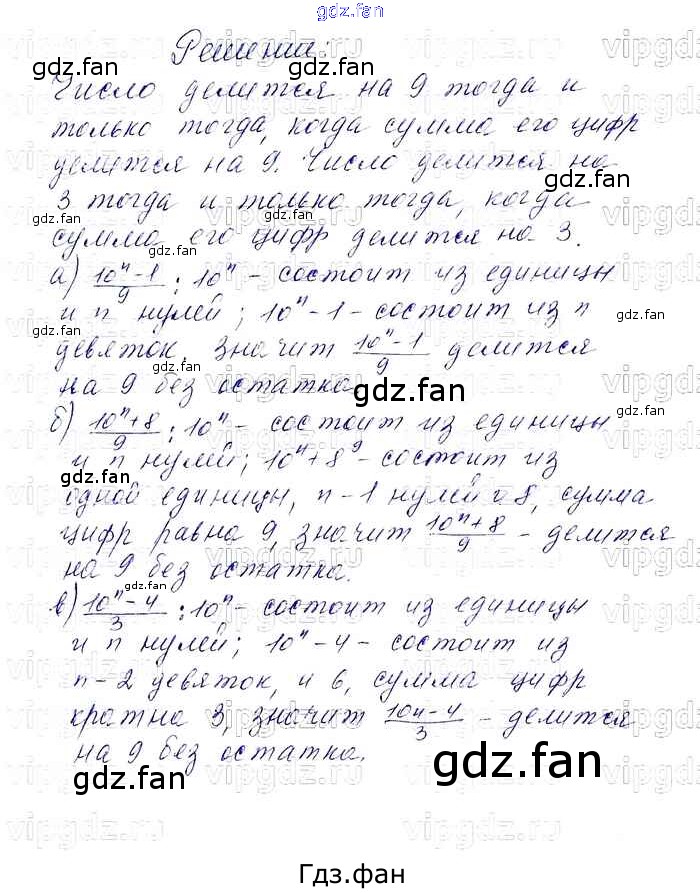 gdz.fan
Решение:
Число делится на 9 тогда и
только тогда, когда сумма его цифр
делится на 9. Число делится на
3 тогда и только тогда, когда
сумма его цифр делится на 3.
а) (10ⁿ-1)/9 ; 10ⁿ - состоит из единицы
и n нулей; 10ⁿ-1 - состоит из n
девяток, значит (10ⁿ-1)/9 делится
на 9 без остатка.
б) (10ⁿ+8)/9 ; 10ⁿ - состоит из единицы
и n нулей; 10ⁿ+8 - состоит из
одной единицы, n-1 нулей и 8, сумма
цифр равна 9, значит (10ⁿ+8)/9 - делится
на 9 без остатка.
в) (10ⁿ-4)/3 ; 10ⁿ - состоит из единицы
и n нулей; 10ⁿ-4 - состоит из
n-2 девяток, и 6, сумма цифр
кратна 3, значит (10n-4)/3 - делится
на 9 без остатка.
Гдз.фан